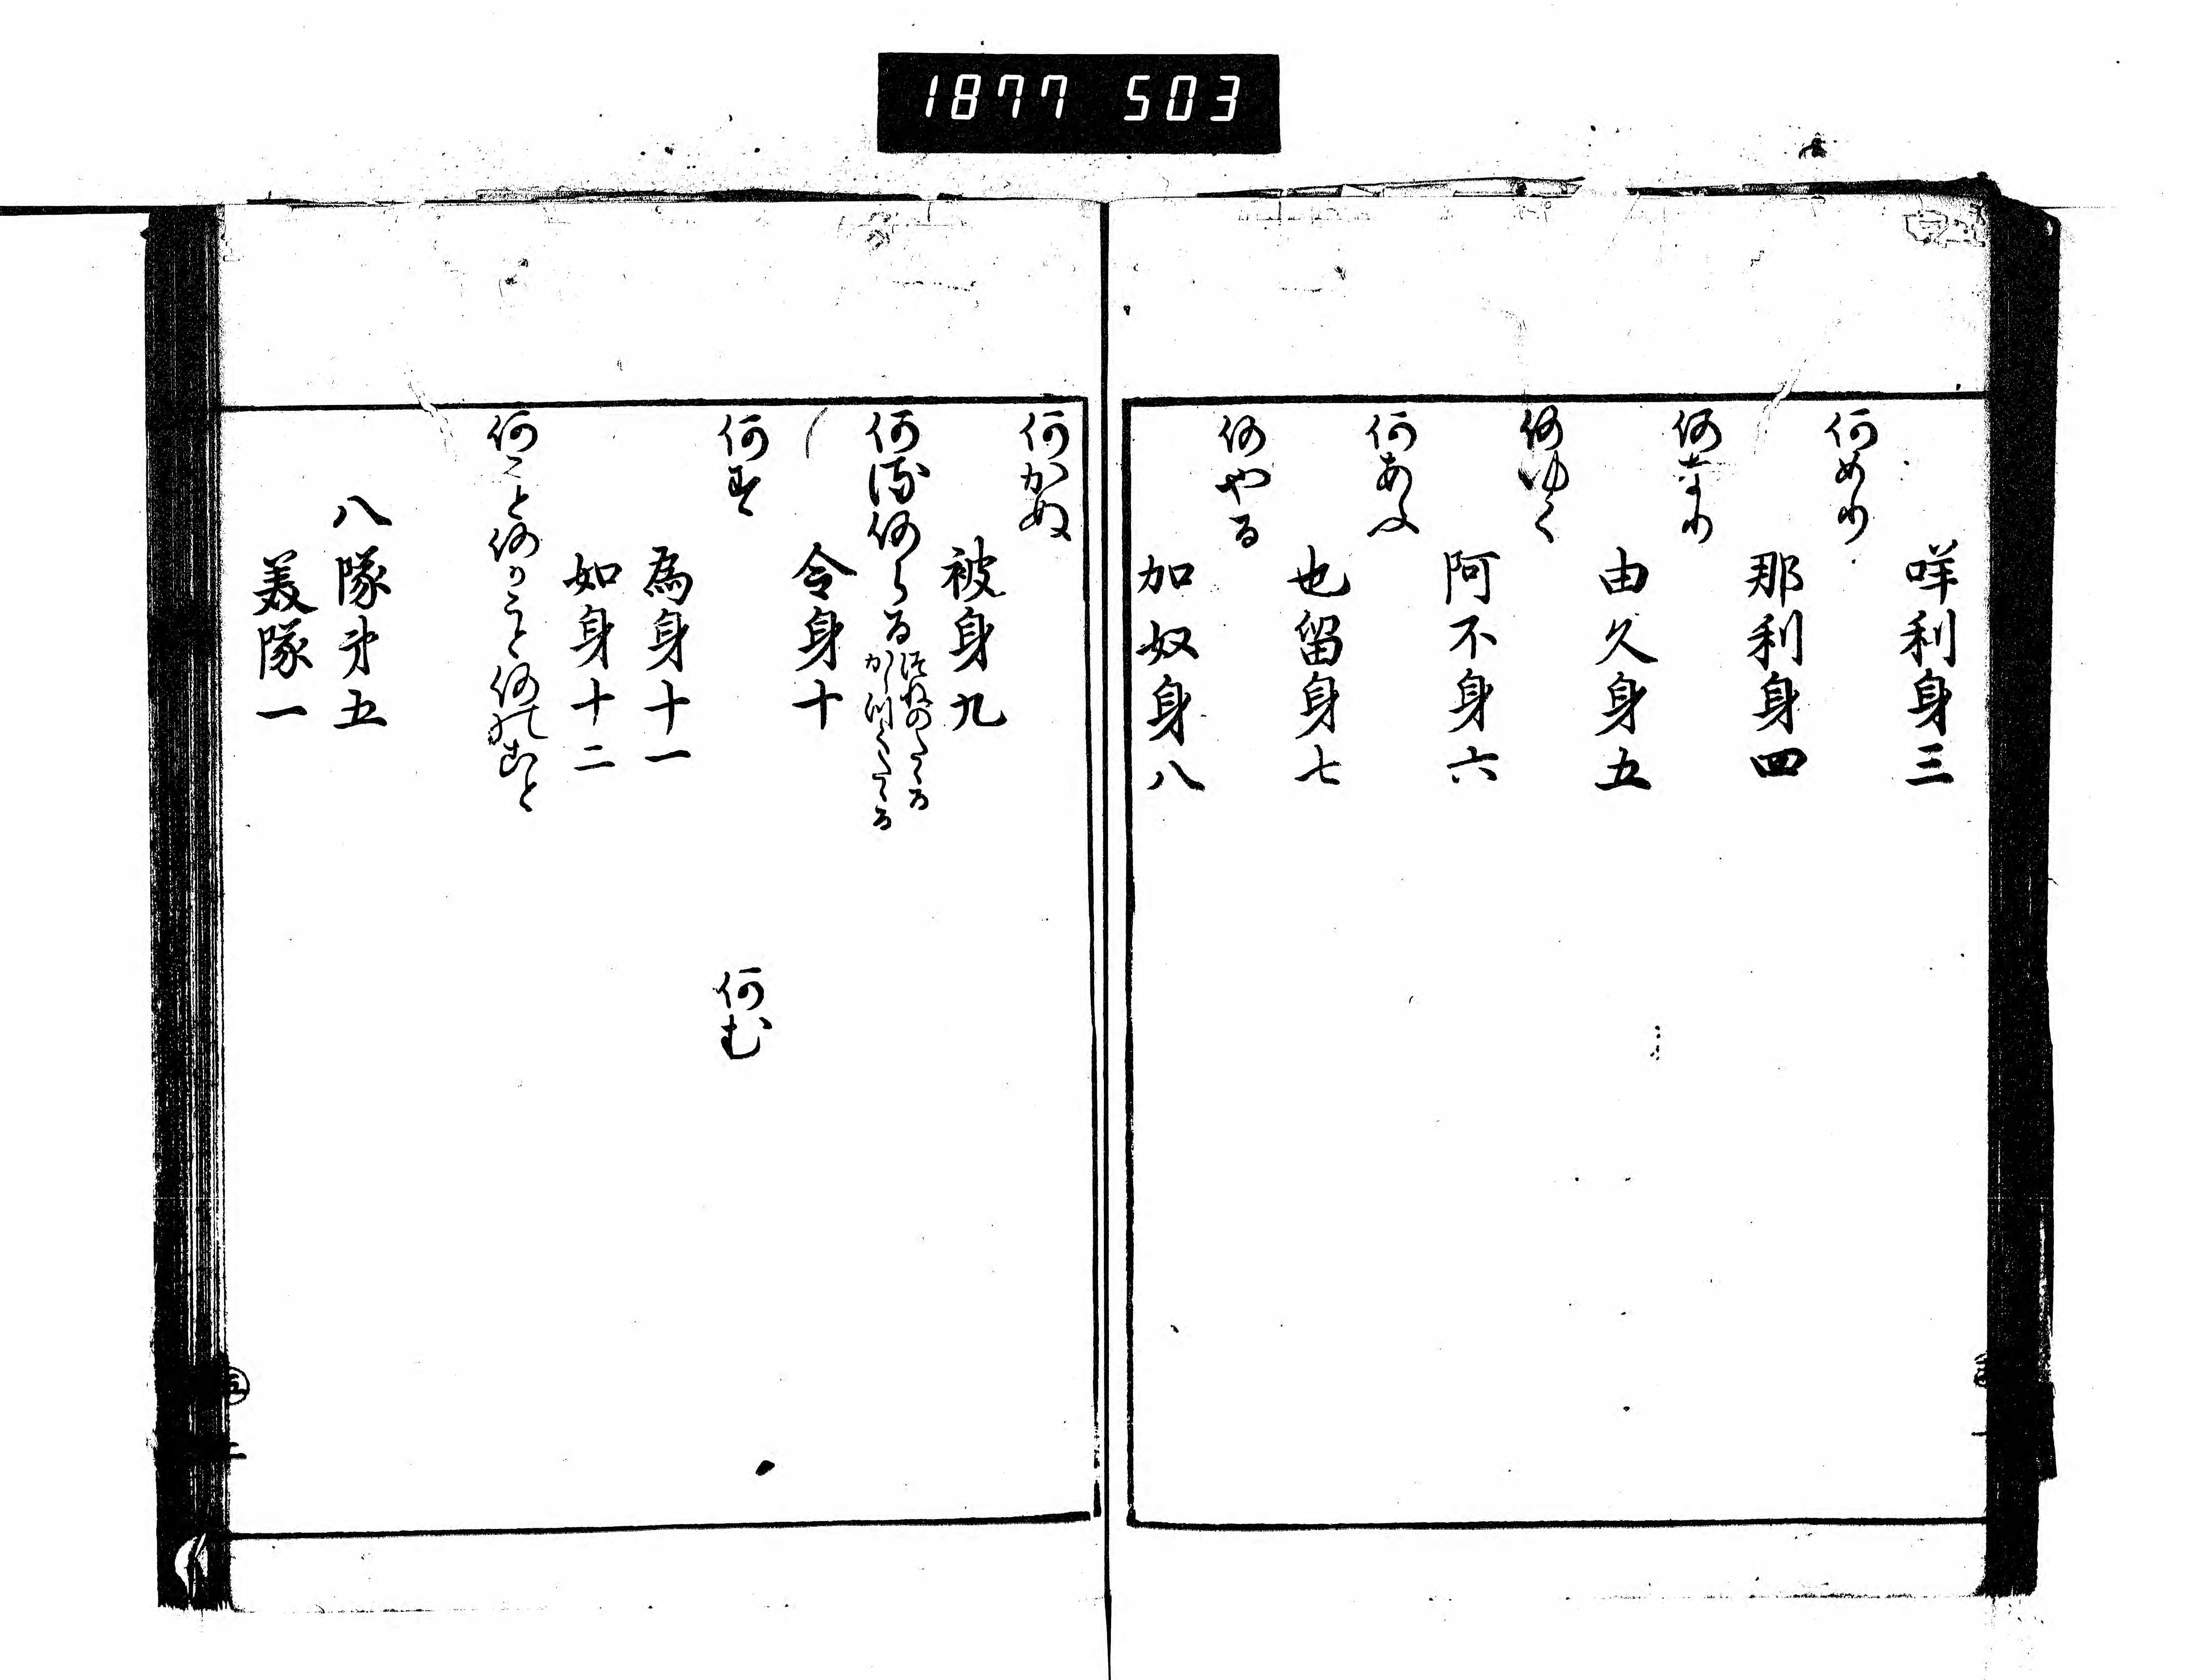 1877 503
咩利身三
何めり
那利身四
何なり
由久身五
何ゆく
阿不身六
何あふ
也留身七
何やる
加奴身八
何かぬ
被身九
何る何らる
令身十
何す 何む
為身十一
如身十二
何こと何かこと何のこと
八隊第五
美隊一